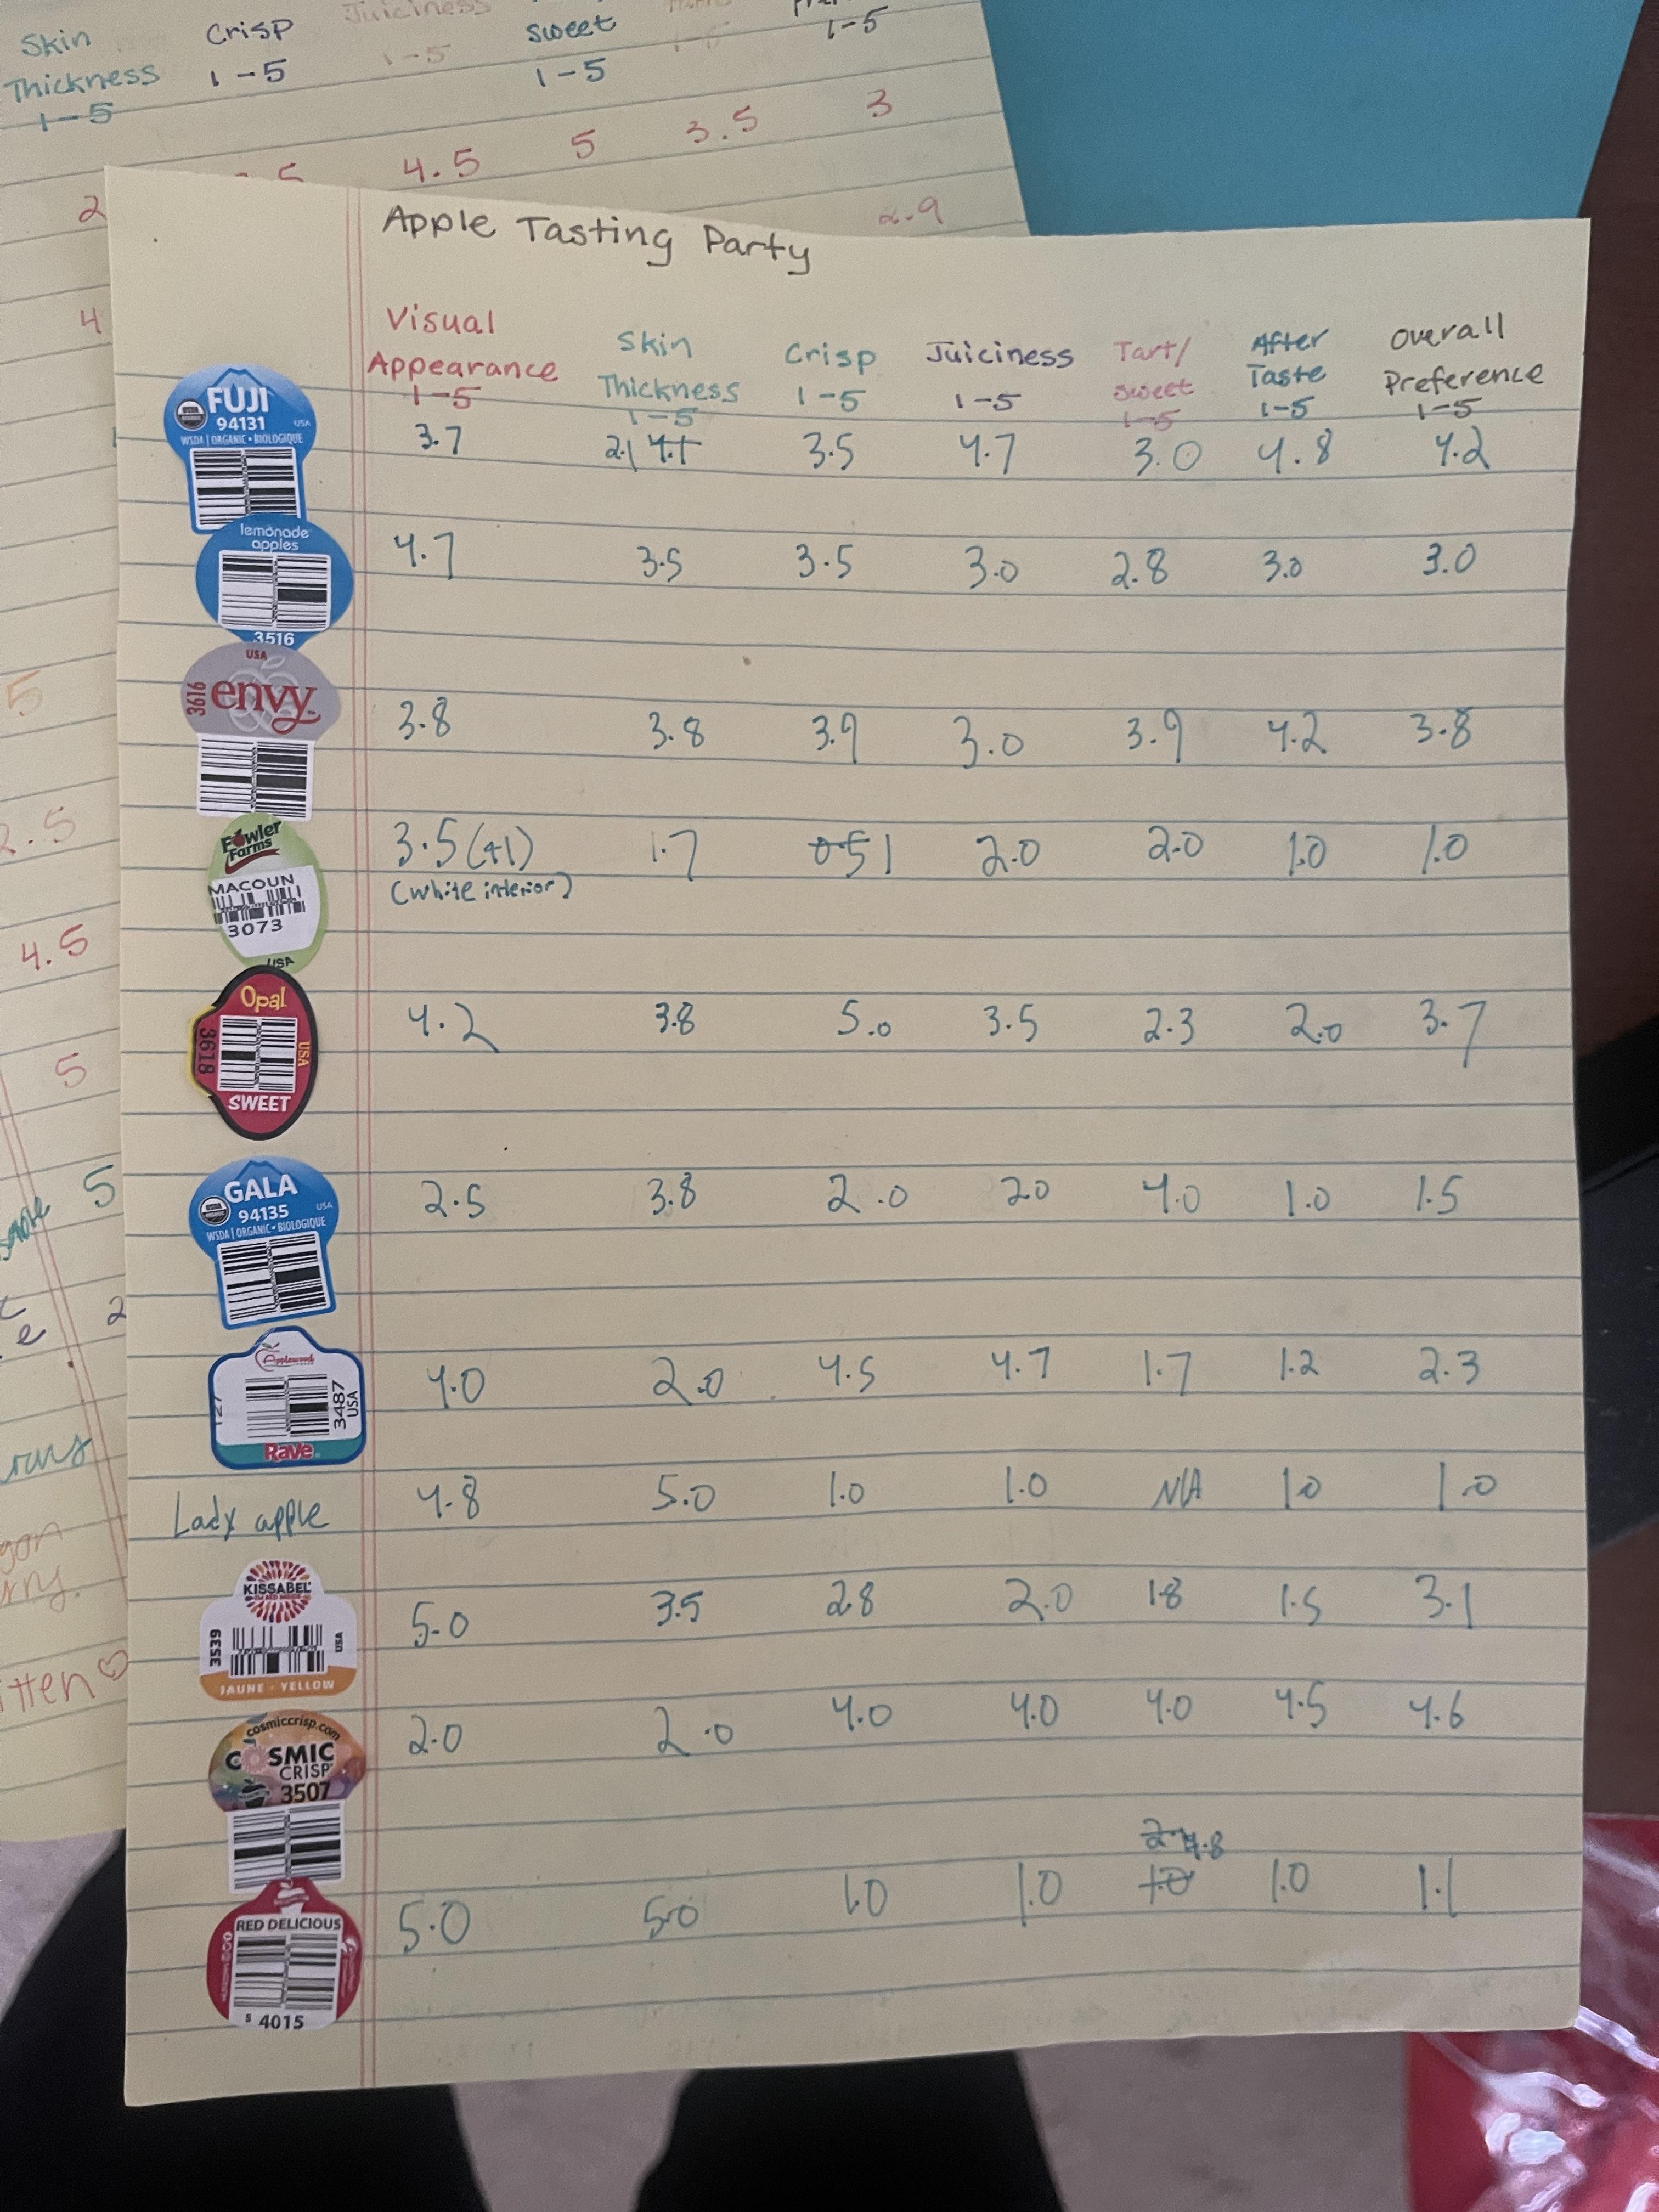 Juiciness
Skin Crisp sweet 1-5
Thickness 1-5 1-5 1-5
1-5
5 4.5 5 3.5 3
2
2.9
4
5
2.5
4.5
5
5
e 2
itten
Apple Tasting Party
Visual Appearance 1-5
Skin Thickness 1-5
Crisp 1-5
Juiciness 1-5
Tart/ sweet 1-5
After Taste 1-5
Overall Preference 1-5
FUJI
94131 USA
WSDA | ORGANIC • BIOLOGIQUE
3.7 2.1 4.1 3.5 4.7 3.0 4.8 4.2
lemonade
apples
3516
4.7 3.5 3.5 3.0 2.8 3.0 3.0
USA
3616 envy
3.8 3.8 3.9 3.0 3.9 4.2 3.8
Fowler
Farms
MACOUN
3073
USA
3.5 (+1) 1.7 0.5 1 2.0 2.0 1.0 1.0
(white interior)
Opal
3618 USA
SWEET
4.2 3.8 5.0 3.5 2.3 2.0 3.7
GALA
94135 USA
WSDA | ORGANIC • BIOLOGIQUE
2.5 3.8 2.0 2.0 4.0 1.0 1.5
Applewood
3487
USA
Rave
4.0 2.0 4.5 4.7 1.7 1.2 2.3
Lady apple 4.8 5.0 1.0 1.0 N/A 1.0 1.0
KISSABEL
3539 USA
JAUNE - YELLOW
5.0 3.5 2.8 2.0 1.8 1.5 3.1
cosmiccrisp.com
COSMIC
CRISP
3507
2.0 2.0 4.0 4.0 4.0 4.5 4.6
4.8
RED DELICIOUS
s 4015
5.0 5.0 1.0 1.0 1.0 1.0 1.1